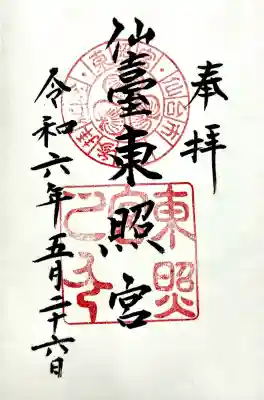 奉拝
仙臺東照宮
令和六年五月二十六日
東照
宮